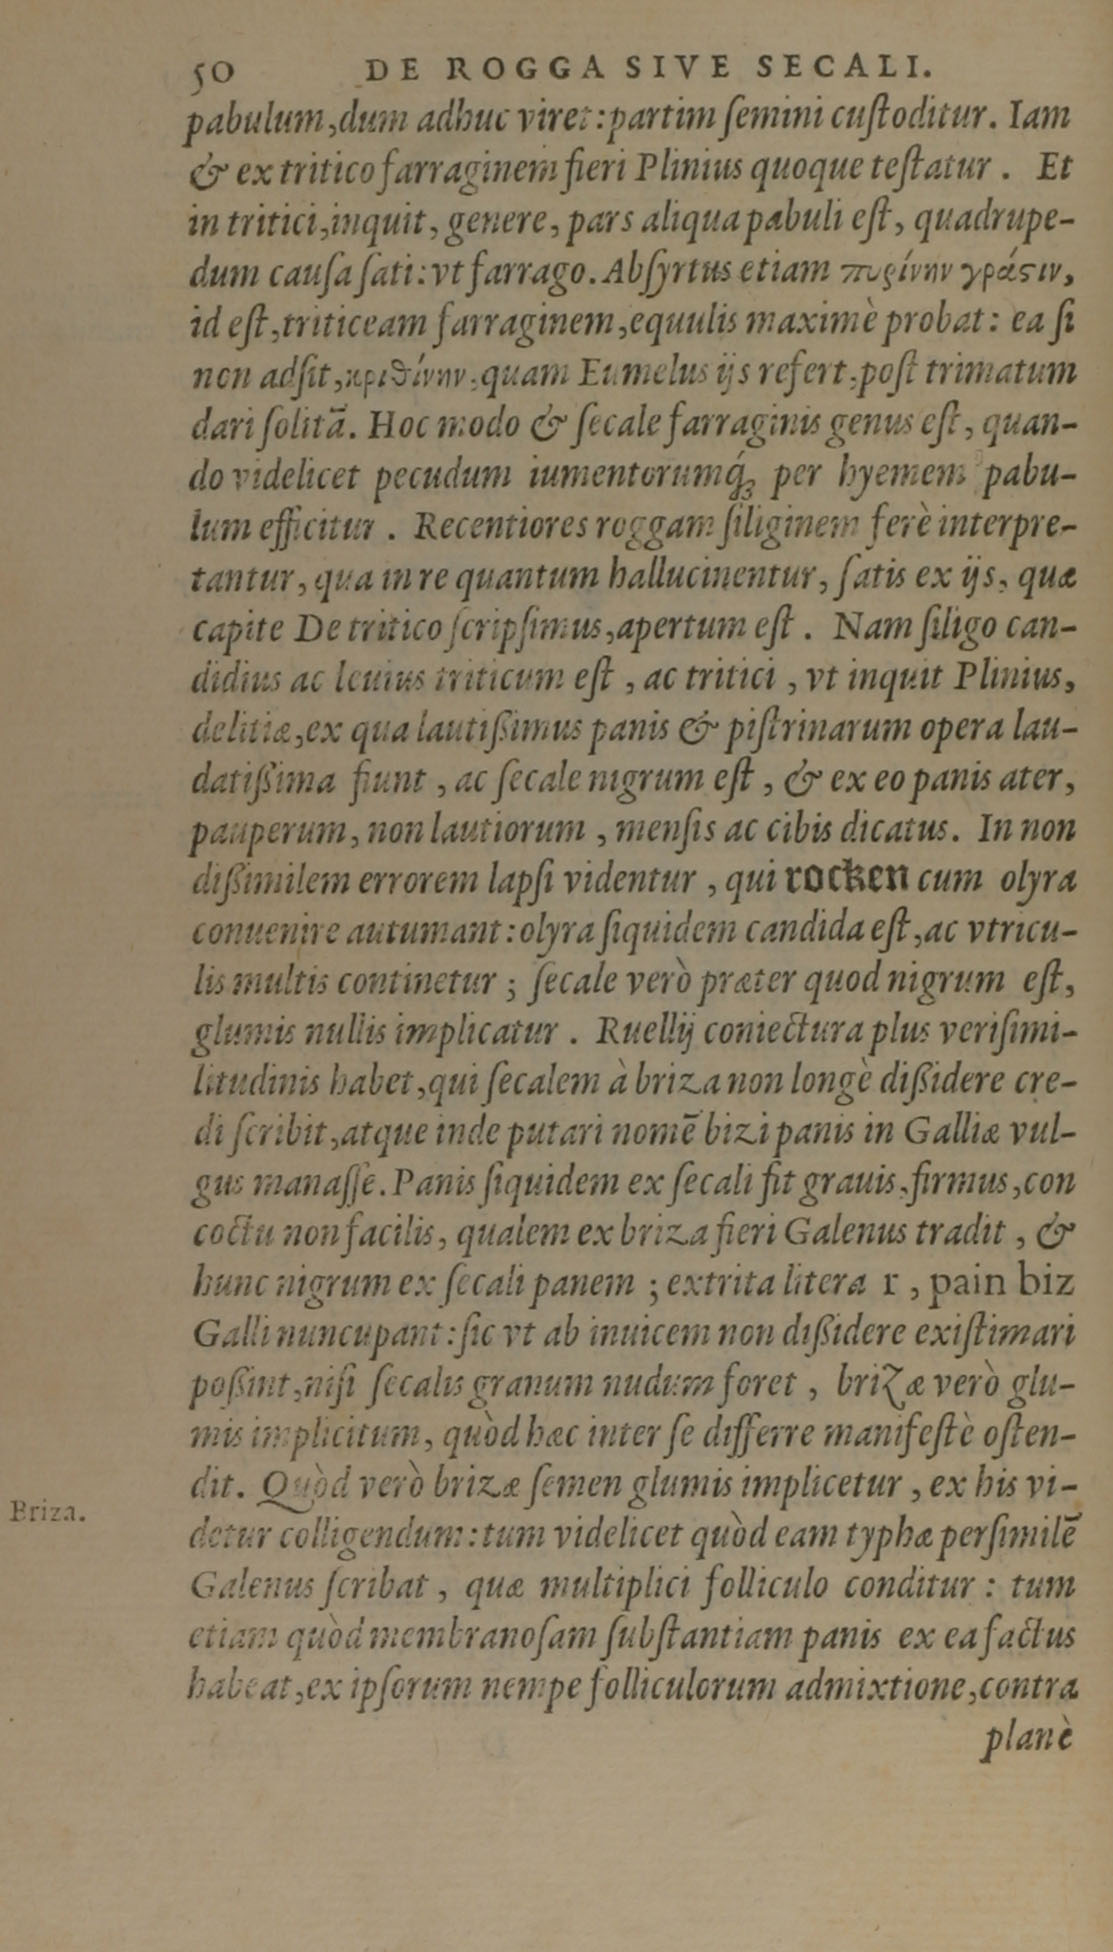 50 DE ROGGA SIVE SECALI.
pabulum, dum adhuc viret: partim ſemini cuſtoditur. Iam
& ex tritico farraginem fieri Plinius quoque teſtatur. Et
in tritici, inquit, genere, pars aliqua pabuli eſt, quadrupe-
dum cauſa ſati: vt farrago. Abſyrtus etiam πυρίνην γράςιν,
id eſt, triticeam farraginem, equulis maximè probat: ea ſi
non adſit, κριθίνην, quam Eumelus ijs refert, poſt trimatum
dari ſolitã. Hoc modo & ſecale farraginis genus eſt, quan-
do videlicet pecudum iumentorumq́ꝫ per hyemem pabu-
lum efficitur. Recentiores roggam ſiliginem ferè interpre-
tantur, qua in re quantum hallucinentur, ſatis ex ijs, quæ
capite De tritico ſcripſimus, apertum eſt. Nam ſiligo can-
didius ac leuius triticum eſt, ac tritici, vt inquit Plinius,
delitiæ, ex qua lautißimus panis & piſtrinarum opera lau-
datißima fiunt, ac ſecale nigrum eſt, & ex eo panis ater,
pauperum, non lautiorum, menſis ac cibis dicatus. In non
dißimilem errorem lapſi videntur, qui rocken cum olyra
conuenire autumant: olyra ſiquidem candida eſt, ac vtricu-
lis multis continetur; ſecale verò præter quod nigrum eſt,
glumis nullis implicatur. Ruellij coniectura plus veriſimi-
litudinis habet, qui ſecalem à briza non longè dißidere cre-
di ſcribit, atque inde putari nomẽ bizi panis in Galliæ vul-
gus manaſſe. Panis ſiquidem ex ſecali fit grauis, firmus, con
coctu non facilis, qualem ex briza fieri Galenus tradit, &
hunc nigrum ex ſecali panem; extrita litera r, pain biz
Galli nuncupant: ſic vt ab inuicem non dißidere exiſtimari
poßint, niſi ſecalis granum nudum foret, brizæ verò glu-
mis implicitum, quòd hæc inter ſe differre manifeſtè oſten-
dit. Quòd verò brizæ ſemen glumis implicetur, ex his vi-
Briza.
detur colligendum: tum videlicet quòd eam typhæ perſimilẽ
Galenus ſcribat, quæ multiplici folliculo conditur: tum
etiam quòd membranoſam ſubſtantiam panis ex ea factus
habeat, ex ipſorum nempe folliculorum admixtione, contra
planè